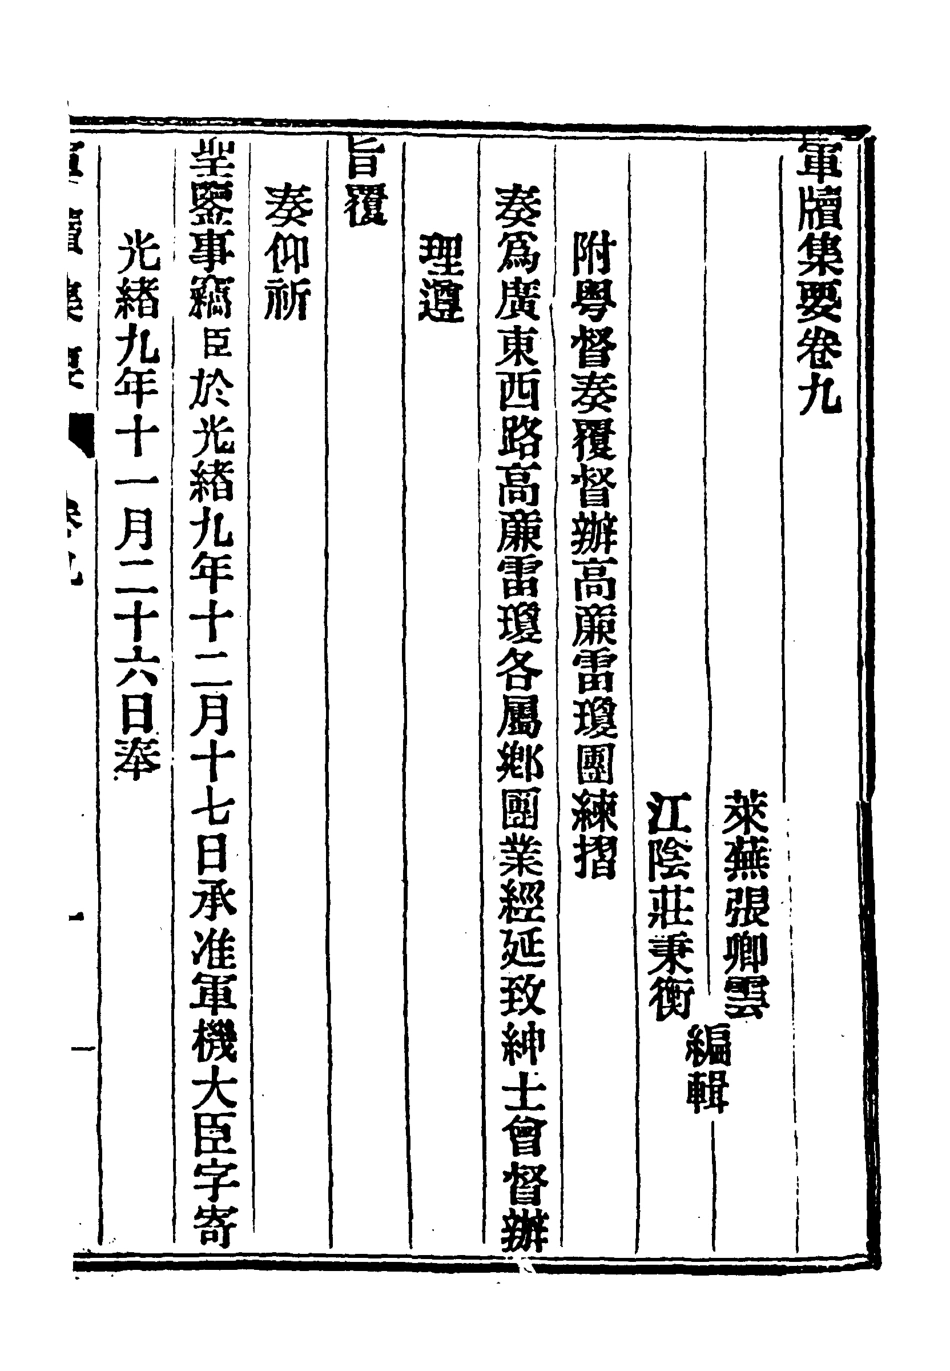 軍牘集要卷九
萊蕪張卿雲
江陰莊秉衡
編輯
附粵督奏覆督辦高廉雷瓊團練摺
奏爲廣東西路高廉雷瓊各屬鄕團業經延致紳士會督辦
理遵
旨覆
奏仰祈
聖鑒事竊臣於光緖九年十二月十七日承准軍機大臣字寄
光緖九年十一月二十六日奉
軍牘集要 卷九 一